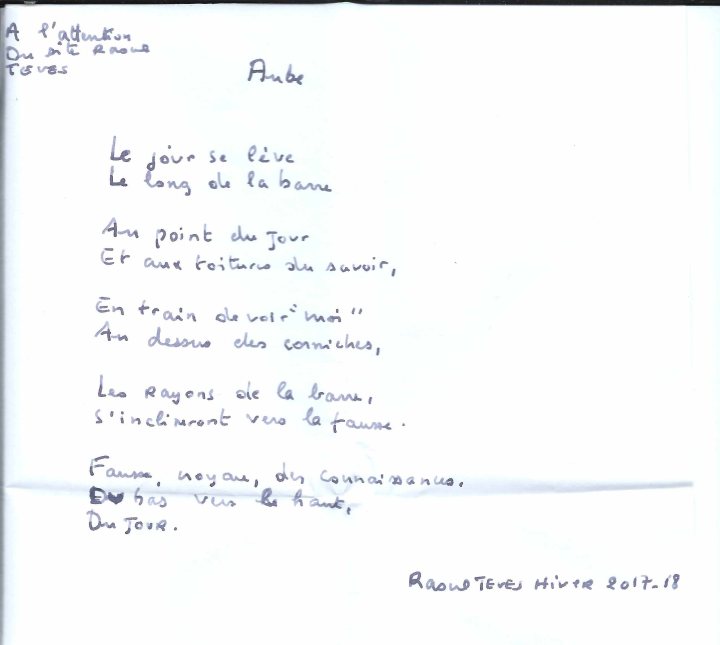 A l'attention
Du site Raoul
TEVES
Aube
Le jour se lève
Le long de la barre
Au point du jour
Et aux toitures du savoir,
En train de voir "moi"
Au dessus des corniches,
Les Rayons de la barre,
S'inclineront vers la fausse.
Fausse, noyau, des connaissances.
Du bas vers le haut,
Du JOUR.
Raoul TEVES Hiver 2017-18